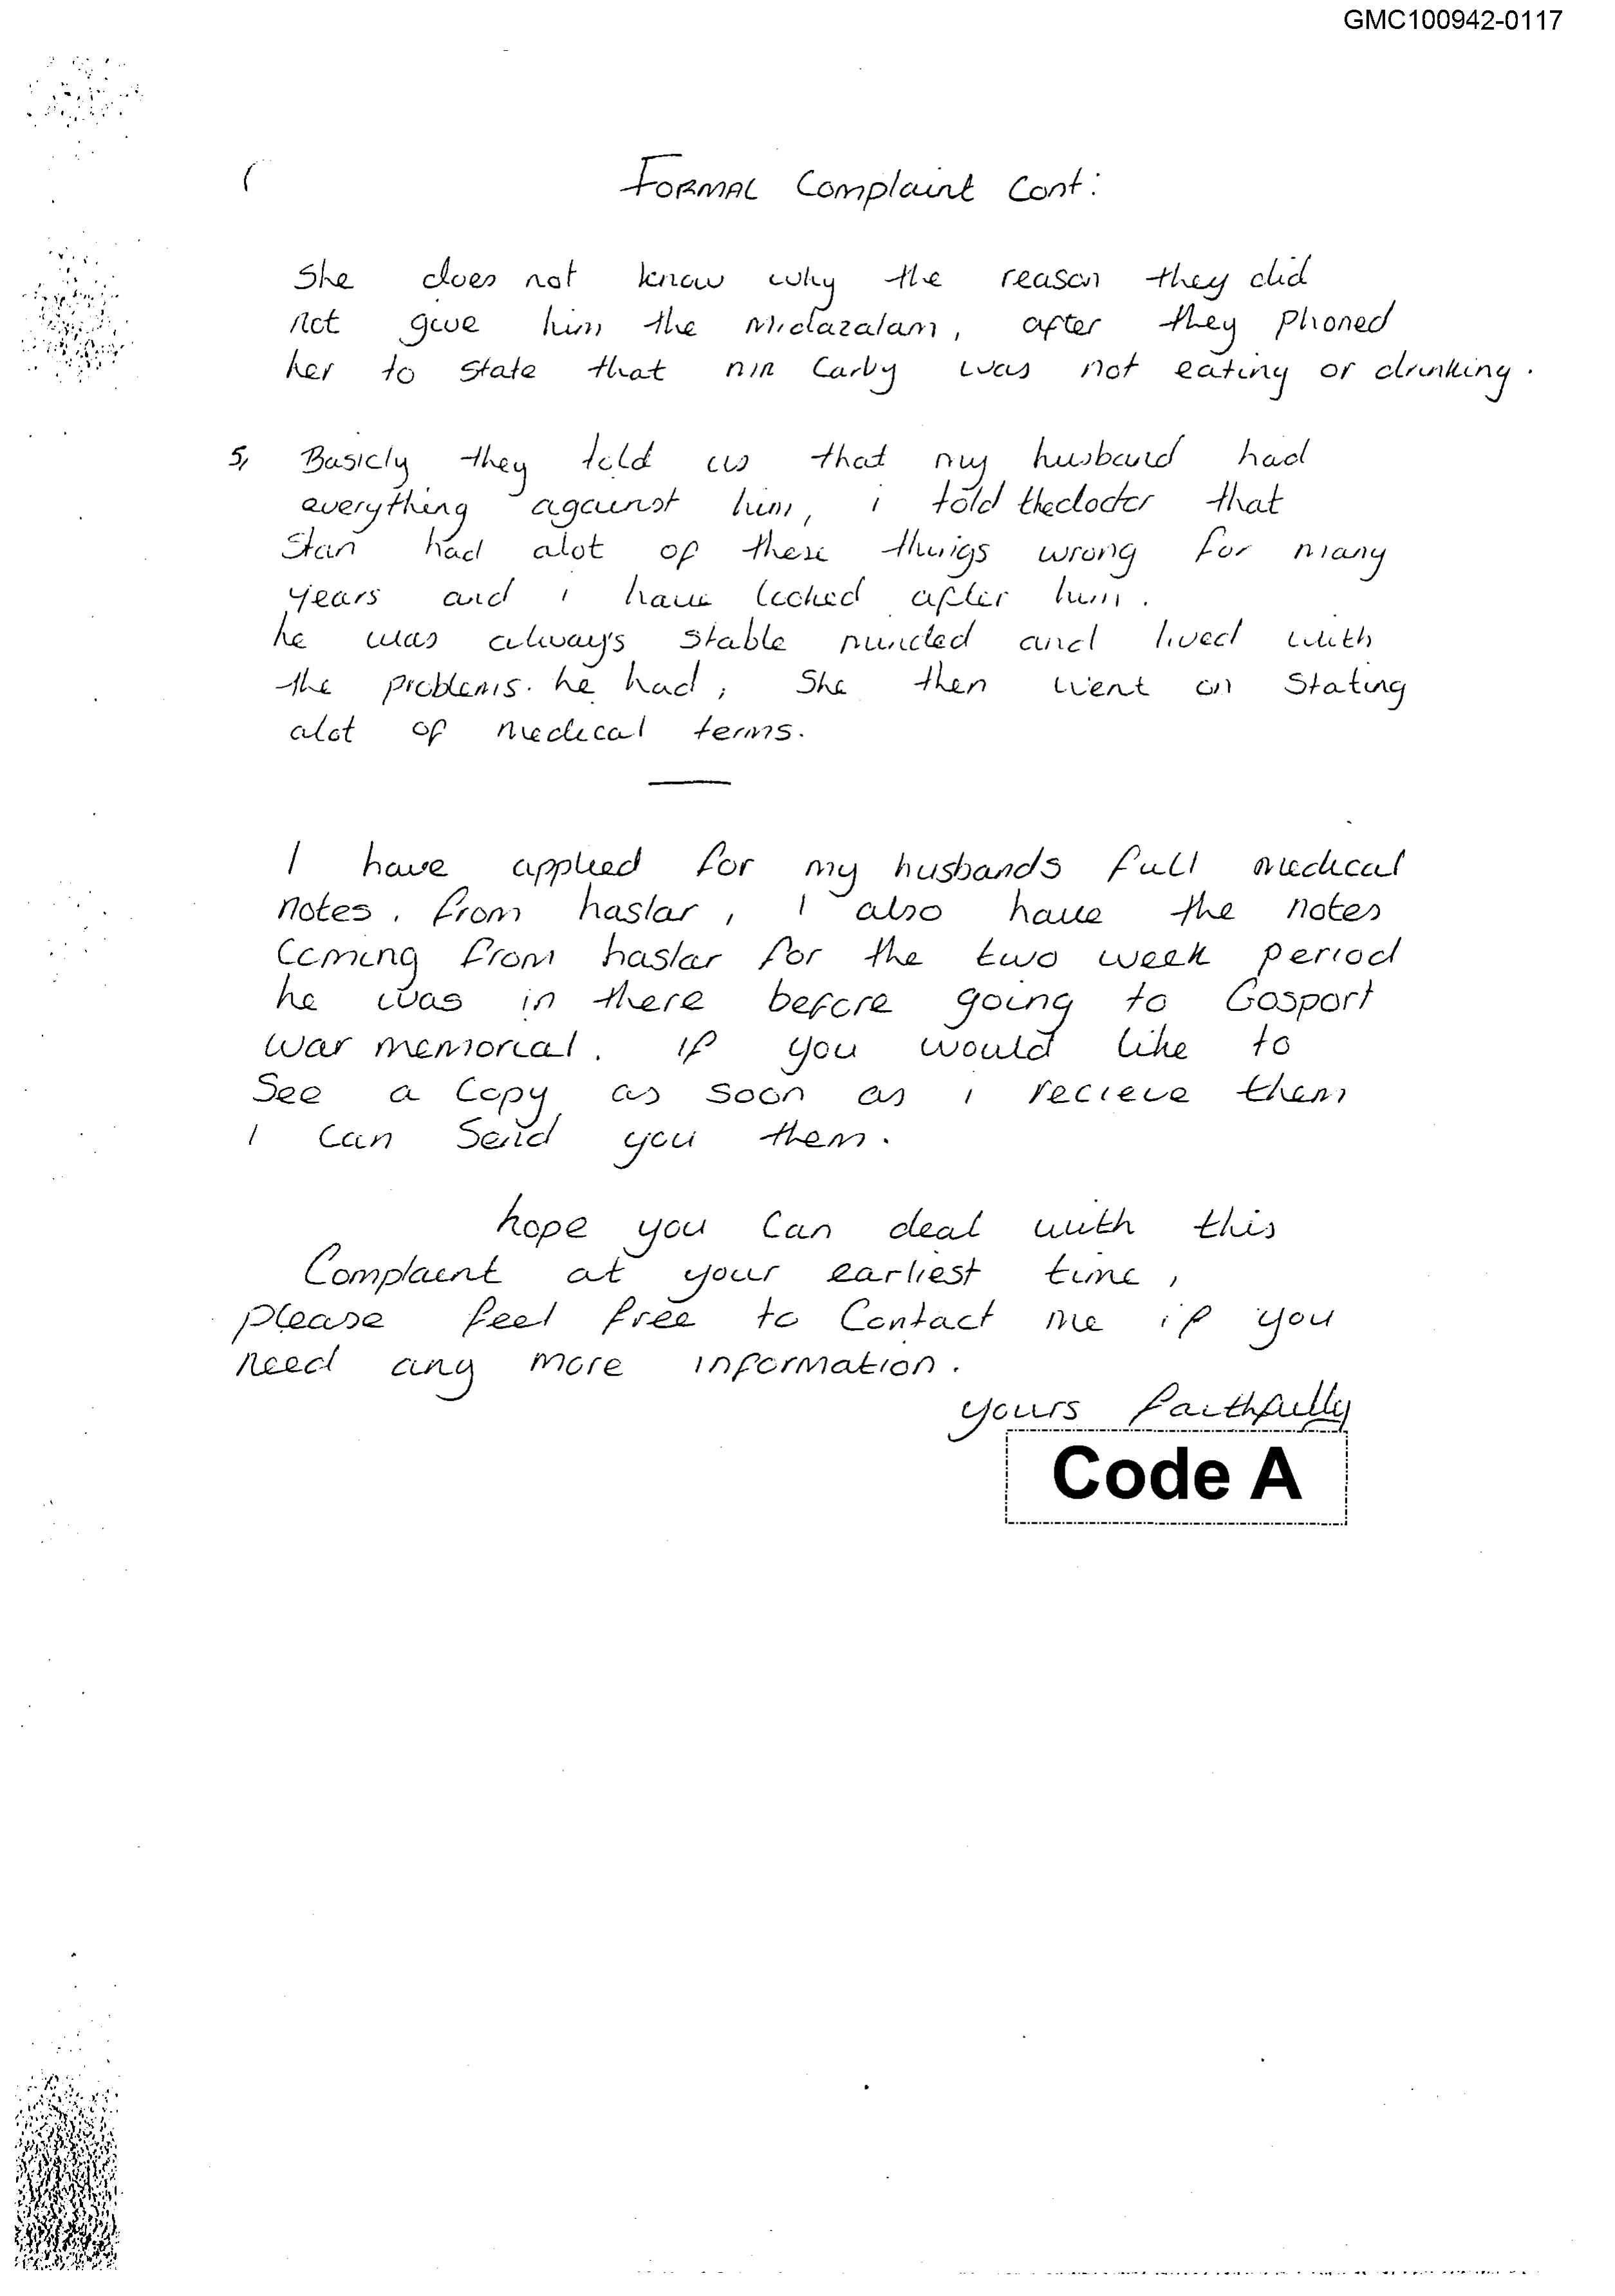 GMC100942-0117
FORMAL Complaint Cont:
She does not know why the reason they did
not give him the Midazalam, after they phoned
her to state that MR Carby was not eating or drinking.
5, Basicly they told us that my husband had
everything against him, i told the doctor that
Stan had alot of these things wrong for many
years and i have looked after him.
he was always stable minded and lived with
the problems he had, She then went on Stating
alot of medical terms.
I have applied for my husbands full medical
notes. from haslar, I also have the notes
Coming from haslar for the two week period
he was in there before going to Gosport
war memorial. If you would like to
See a Copy as soon as i recieve them
I Can Send you them.
hope you Can deal with this
Complaint at your earliest time,
please feel free to Contact me if you
need any more information.
yours faithfully
Code A